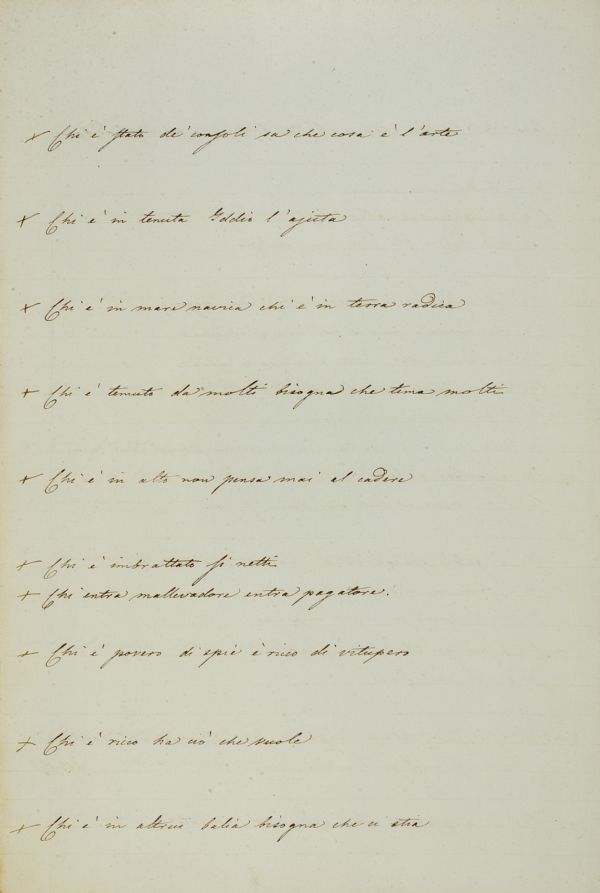 + Chi è stato de' consoli sa che cosa è l'arte
+ Chi è in tenuta Iddio l'ajuta
+ Chi è in mare navica chi è in terra radica
+ Chi è temuto da molti bisogna che tema molti
+ Chi è in alto non pensa mai al cadere
+ Chi è imbrattato si netti
+ Chi entra mallevadore entra pagatore.
+ Chi è povero di spie è ricco di vitupero
+ Chi è ricco ha ciò che vuole
+ Chi è in altrui balia bisogna che ci stia